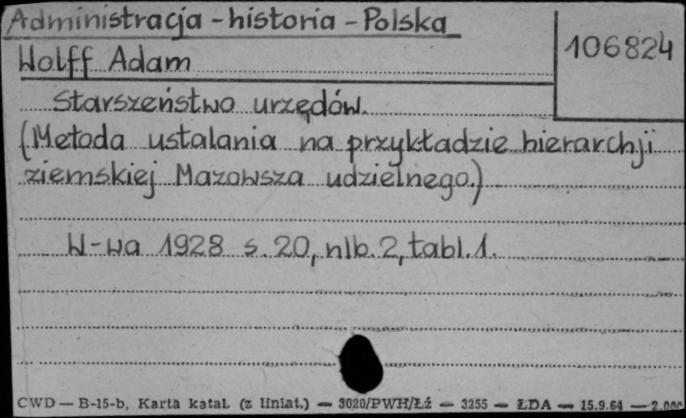 Administracja - historia - Polska
106824
Wolff Adam
Starszeństwo urzędów.
(Metoda ustalania na przykładzie hierarchji
ziemskiej Mazowsza udzielnego.)
W-wa 1928 s. 20, nlb. 2, tabl. 1.
CWD — B-15-b, Karta katal. (z liniat.) — 3020/PWH/Łź — 3255 — ŁDA — 15.9.64 — 2.000